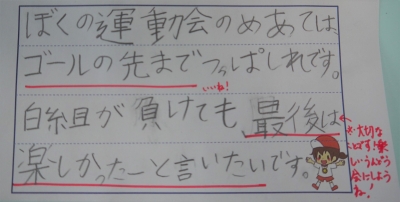 ぼくの運動会のめあては、
ゴールの先までつっぱしれです。
いいね!
白組が負けても、最後は
楽しかったーと言いたいです。
大切な
ことです!楽
しいうんどう
会にしよう
ね!